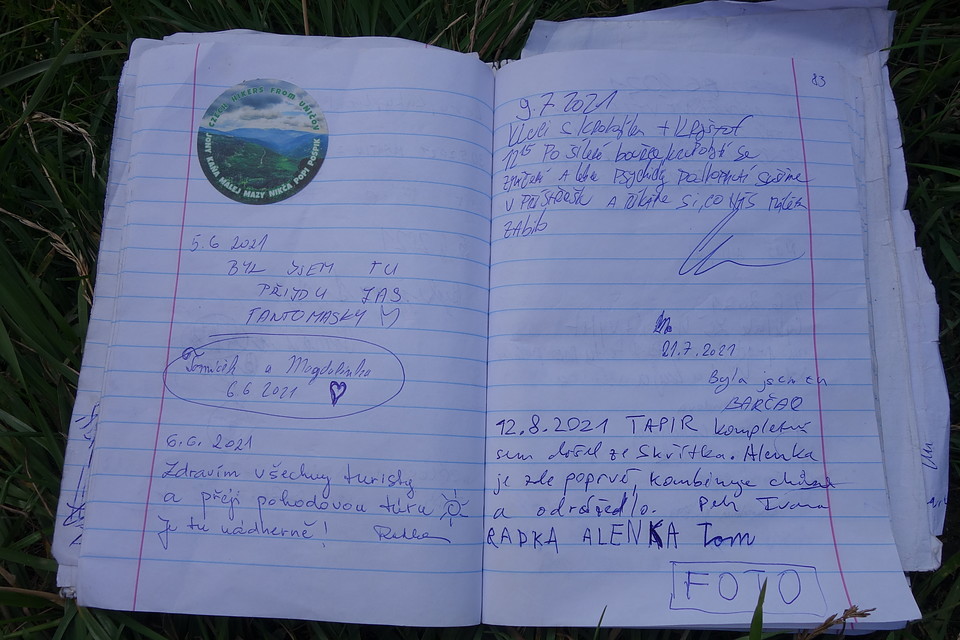 CZECH HIKERS FROM UNIČOV
JONY KÁŇA MÁLEJ MAZY NIKČA POPI POSPIK
5.6 2021
BYL JSEM TU
PŘIJDU ZAS
TANTOMASKY
Tomícík a Magdalenka
6.6 2021
6.6. 2021
Zdravím všechny turisty
a přeji pohodovou túru
Je tu nádherně! Radka
83
9.7 2021
Vlčci s krokojtem + Kryštof
12 15 Po silné bouřce se
a psychicky
v přístřešku a říkáme si, co nás málem
zabilo
21.7.2021
Byla jsem
BARČA
12.8.2021 TAPIR kompletní
sem došel ze Skřítka. Alenka
je zde poprvé, kombinuje chůzi
a odrážedlo. Petr Ivana
RADKA ALENKA Tom
FOTO